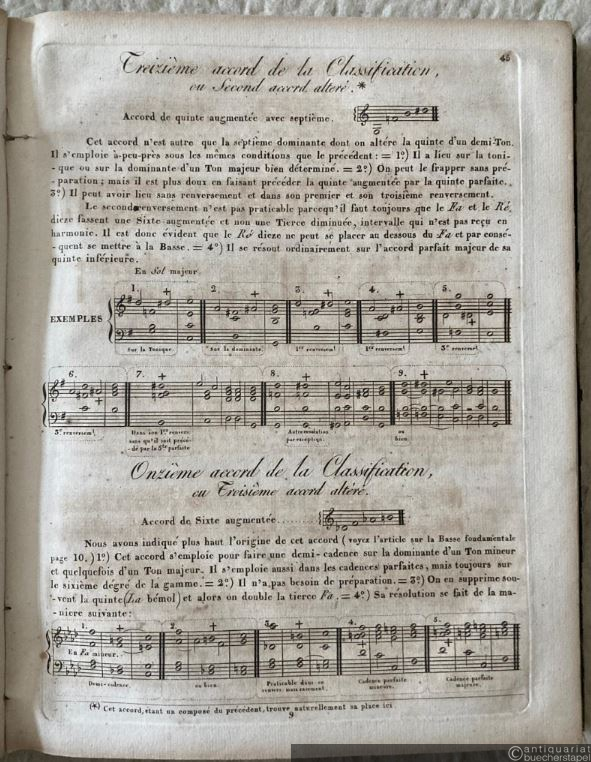 45
Treizième accord de la Classification,
ou Second accord altéré.*
Accord de quinte augmentée avec septième.
Cet accord n'est autre que la septième dominante dont on altère la quinte d'un demi-Ton.
Il s'emploie à-peu-près sous les mêmes conditions que le précédent: = 1º) Il a lieu sur la toni-
que ou sur la dominante d'un Ton majeur bien déterminé. = 2º) On peut le frapper sans pré-
paration; mais il est plus doux en faisant précéder la quinte augmentée par la quinte parfaite..
3º) Il peut avoir lieu sans renversement et dans son premier et son troisième renversement.
Le second renversement n'est pas praticable parcequ'il faut toujours que le Fa et le Ré,
dieze fassent une Sixte augmentée et non une Tierce diminuée, intervalle qui n'est pas reçu en
harmonie. Il est donc évident que le Ré dieze ne peut se placer au dessous du Fa et par consé-
quent se mettre à la Basse. = 4º) Il se résout ordinairement sur l'accord parfait majeur de sa
quinte inférieure.
En Sol majeur.
1. + 2. + 3. + 4. + 5.
EXEMPLES
+
Sur la Tonique. Sur la dominante. 1er renversemt. 1er renversemt. 3e renversemt.
6. 7. + 8. + 9. +
+
3e renversemt. Dans son 1er renvers: ou
sans qu'il soit précé- bien.
-dé par la 5te parfaite
Onzième accord de la Classification,
ou Troisième accord altéré.
Accord de Sixte augmentée.......
Nous avons indiqué plus haut l'origine de cet accord (voyez l'article sur la Basse fondamentale
page 10.) 1º) Cet accord s'emploie pour faire une demi-cadence sur la dominante d'un Ton mineur
et quelquefois d'un Ton majeur. Il s'emploie aussi dans les cadences parfaites, mais toujours sur
le sixième dégré de la gamme. = 2º) Il n'a pas besoin de préparation. = 3º) On en supprime sou-
-vent la quinte (La bémol) et alors on double la tierce Fa. = 4º) Sa résolution se fait de la ma-
nière suivante:
1. + 2. + 3. 4. 5.
En Fa mineur. + +
Demi-cadence. ou bien. Praticable dans ce Cadence parfaite Cadence parfaite
renvers: mais rarement. mineure. majeure.
(*) Cet accord, étant un composé du précédent, trouve naturellement sa place ici
9
© antiquariat
buecherstapel